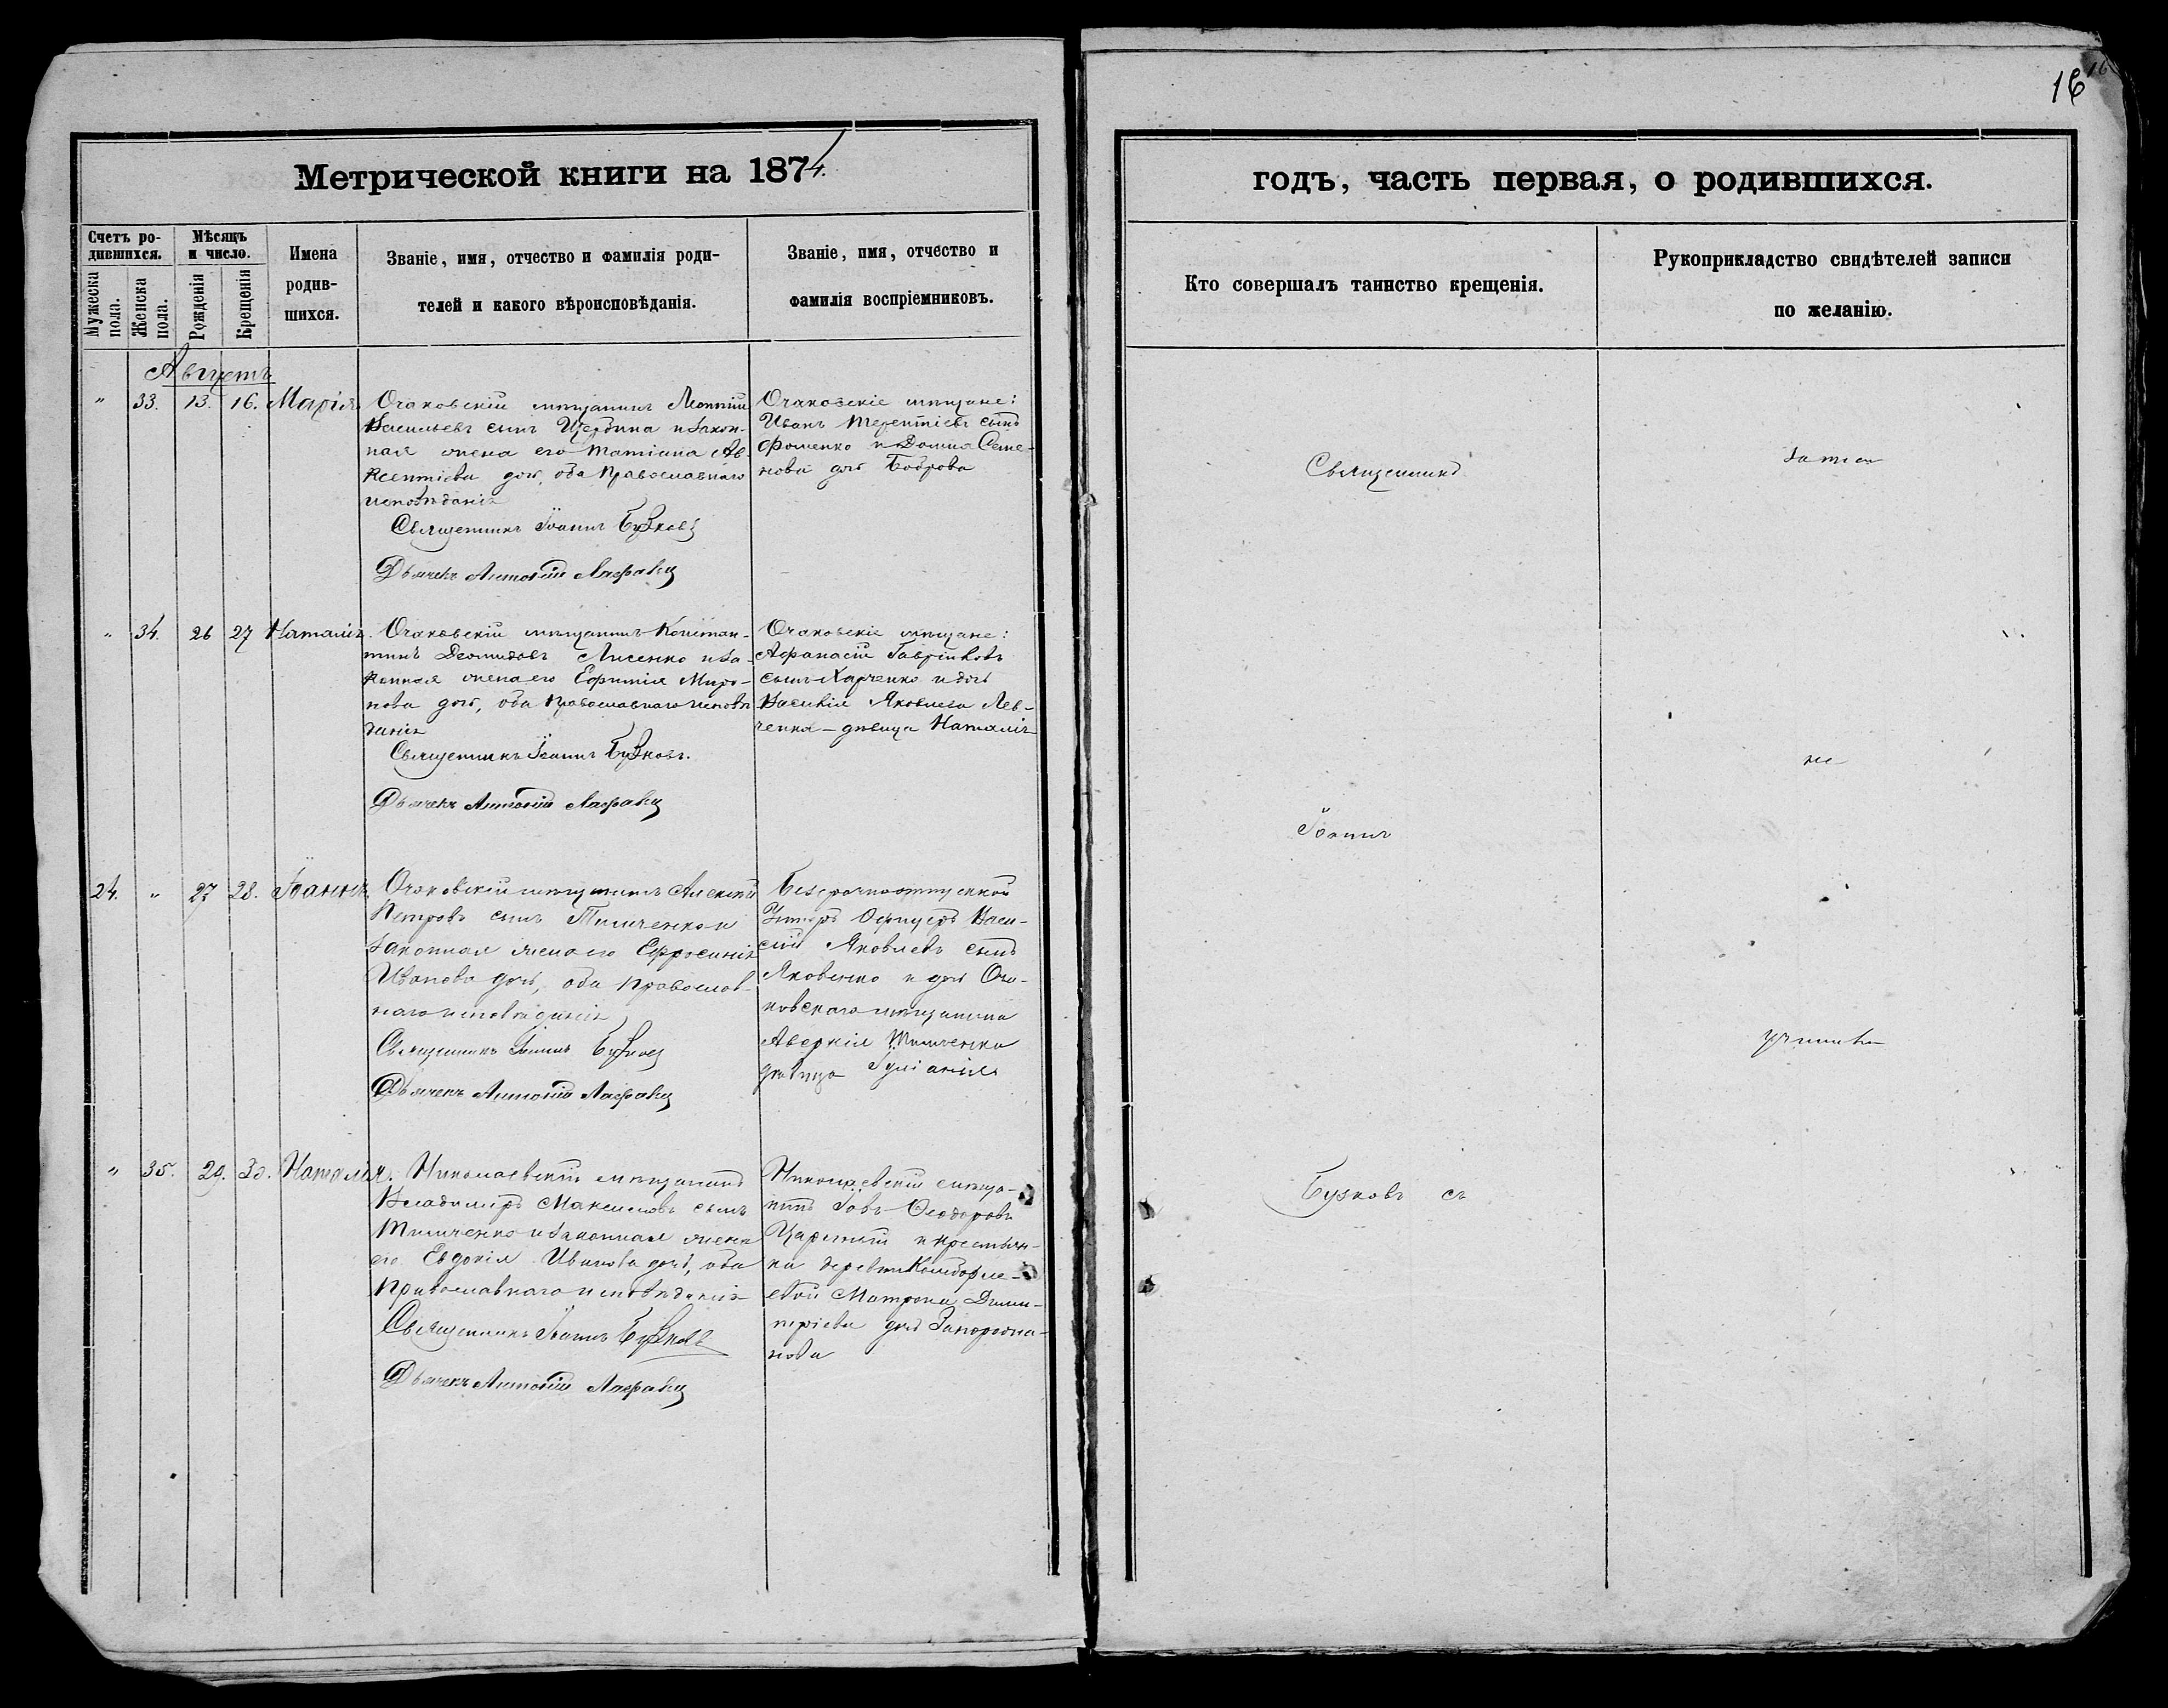 16
16
Метрической книги на 1874.
годъ, часть первая, о родившихся.
Счетъ ро-
дившихся.
Мужеска
пола.
Женска
пола.
Мѣсяцъ
и число.
Рожденія
Крещенія
Имена
родив-
шихся.
Званіе, имя, отчество и фамилія роди-
телей и какого вѣроисповѣданія.
Званіе, имя, отчество и
фамилія воспріемниковъ.
Кто совершалъ таинство крещенія.
Рукоприкладство свидѣтелей записи
по желанію.
Августъ
" 33. 13. 16. Марія
Очаковскій мѣщанинъ Леонтій
Васильевъ сынъ Щербина и закон-
ная жена его Татіана Ав-
ксентіева дочь, оба православнаго
исповѣданія
Священникъ Іоаннъ Бузковъ
Дьячекъ Антоній
Очаковскіе мѣщане:
Иванъ Терентіевъ сынъ
Фоменко и Домна Семе-
нова дочь Боброва
" 34. 26 27 Наталія.
Очаковскій мѣщанинъ Констан-
тинъ Деомидовъ Лисенко и за-
конная жена его Ефимія Миро-
нова дочь, оба православнаго исповѣ
данія
Священникъ Іоаннъ Бузковъ.
Дьячекъ Антоній
Очаковскіе мѣщане:
Афанасій Гавріиловъ
сынъ Харченко и дочь
Василія Яковлева Лев-
ченка – дѣвица Наталія
24. " 27 28. Іоаннъ
Очаковскій мѣщанинъ Алексѣй
Петровъ сынъ Тимченко и
законная жена его Ефросинія
Иванова дочь, оба православ-
наго исповѣданія
Священникъ Іоаннъ Бузковъ
Дьячекъ Антоній
Безсрочноотпускной
Унтеръ Офицеръ Васи-
лій Яковлевъ сынъ
Яковенко и дочь Оча-
ковскаго мѣщанина
Аверкія Тимченка
дѣвица Іуліанія
" 35. 29. 30. Наталія.
Николаевскій мѣщанинъ
Владиміръ Максимовъ сынъ
Тимченко и законная жена
его Евдокія Иванова дочь, оба
православнаго исповѣданія
Священникъ Іоаннъ Бузковъ
Дьячекъ Антоній
Николаевскій мѣща-
нинъ Іовъ Ѳеодоровъ
и крестьян-
ка деревни
Матрона Дими-
тріева дочь
нова
Священникъ
Іоаннъ
Бузковъ съ
не